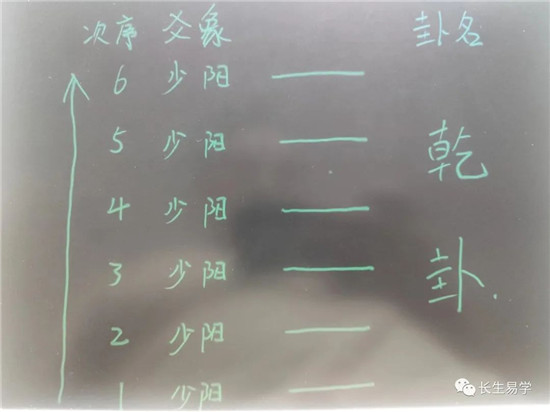 次序 爻象 卦名
6 少阳
5 少阳 乾
4 少阳
3 少阳 卦.
2 少阳
1 少阳
长生易学